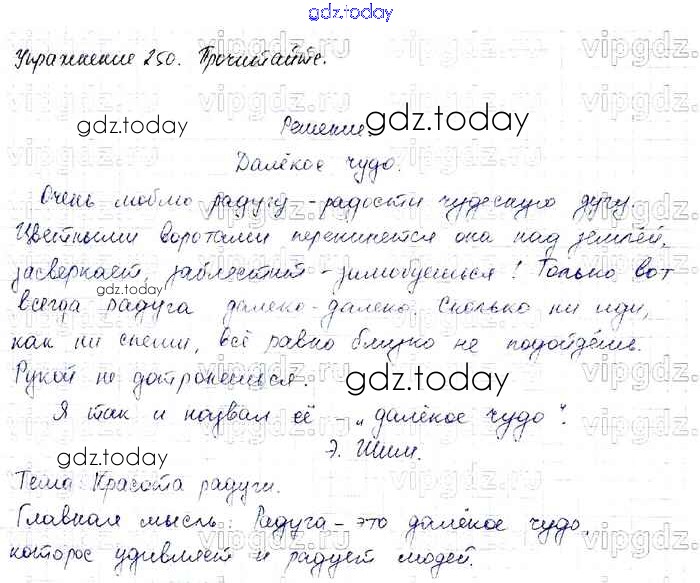 gdz.today
Упражнение 250. Прочитайте.
Решение.
Далёкое чудо.
Очень люблю радугу - радости чудесную дугу.
Цветными воротами перекинется она над землёй,
засверкает, заблестит - залюбуешься! Только вот
всегда радуга далеко-далеко. Сколько ни иди,
как ни спеши, всё равно близко не подойдёшь.
Рукой не дотронешься.
Я так и назвал её - „далёкое чудо".
Э. Шим.
Тема Красота радуги.
Главная мысль: Радуга - это далёкое чудо,
которое удивляет и радует людей.